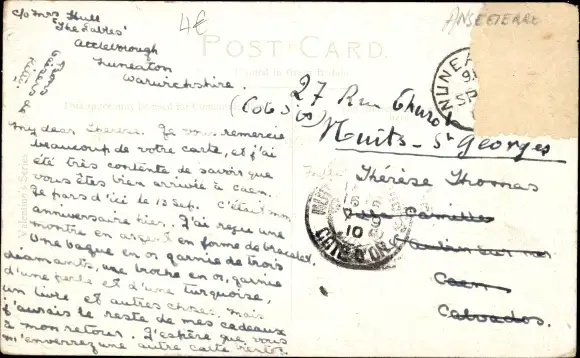 c/o Mrs Hull
'The Gables'
Attleborough
Nuneaton
Warwickshire.
4€
ANGLETERRE
POST CARD.
Printed in Great Britain
This space may be used for
Valentine's Series
NUNEA
27 Rue Thurot
(Cote d'Or)
Nuits-St Georges
My dear Thérèse. Je vous remercie
beaucoup de votre carte, et j'ai
été très contente de savoir que
vous êtes bien arrivée à Caen.
Je pars d'ici le 13 Sep. C'était mon
anniversaire hier. J'ai reçue une
montre en argent en forme de bracelet
Une bague en or garnie de trois
diamants, une broche en or, garnie
d'une perle et d'une turquoise,
un livre et autres choses, mais
j'aurais le reste de mes cadeaux
à mon retour. J'espère que vous
m'enverrez une autre carte
Thérèse Thomas
Villa Camilles
sur mer
Caen
Calvados.
COTE D'OR